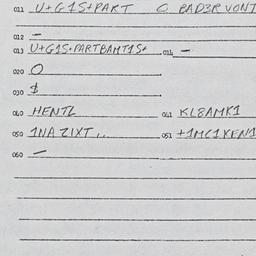 011 U+G1S+PART O BAD3R VONT
012 –
013 U+G1S+PARTBAMT1S+ 014 –
020 O
030 $
040 HENTZ 041 KL8AMK1
050 1NA ZIXT ,. 051 +1MC1KEN1
060 –